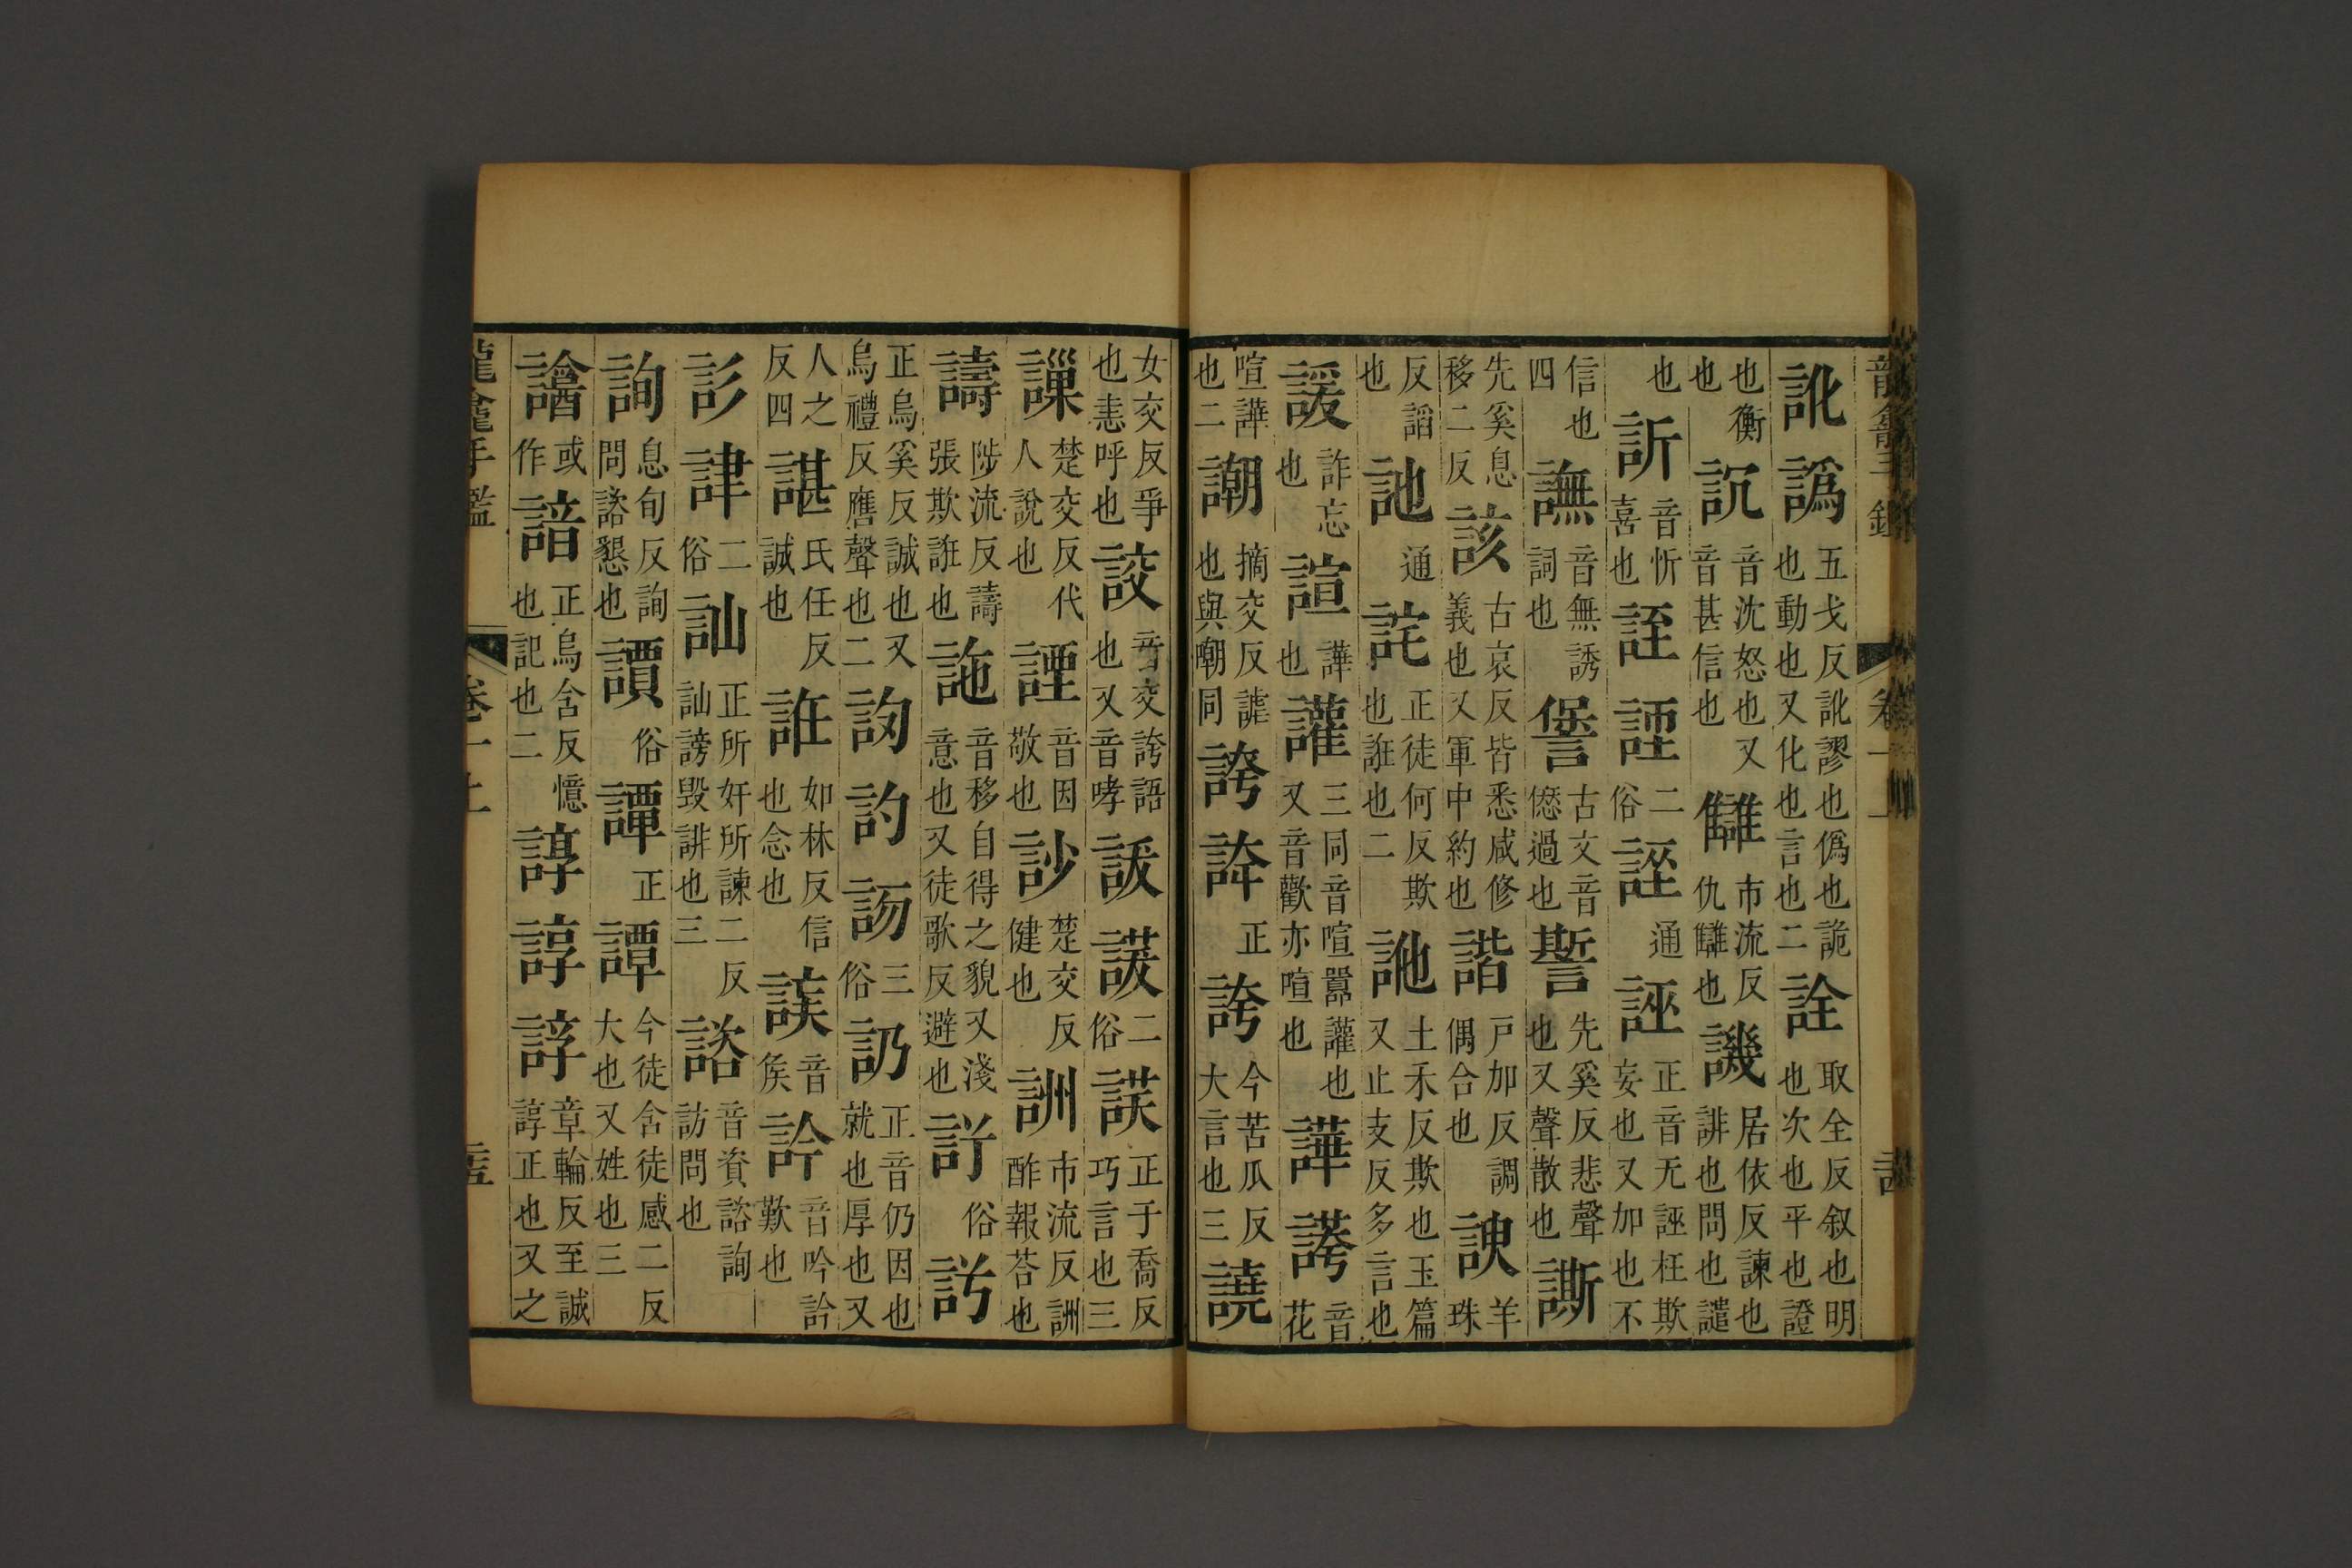 訛譌五戈反訛謬也僞也詭也動也又化也言也二詮取全反叙也明也次也平也證
也衡也訦音沈怒也又音甚信也讎市流反仇讎也譏居依反諫也誹也問也譴
也訢音忻喜也誈𧧝二俗誣通誣正音无誣枉欺妄也又加也不
信也四譕音無誘詞也䇓古文音愆過也誓先奚反悲聲也又聲散也謕
先奚息移二反該古哀反皆悉咸修義也又軍中約也諧戶加反調偶合也諛羊珠
反謟也訑通詑正徒何反欺也誑也二訑土禾反欺也玉篇又止支反多言也
諼詐忘也諠譁也讙三同音喧嚣讙也又音歡亦喧也譁謣音花
喧譁也二謿摘交反謔也與嘲同誇誶正誇今苦瓜反大言也三譊
女交反爭也恚呼也詨音交誇語也又音哮䛄䛼二俗䛥正于喬反巧言也三
謤楚交反代人說也諲音因敬也訬楚交反健也詶市流反詶酢報荅也
譸陟流反譸張欺誑也訑音移自得之貌又淺意也又徒歌反避也訏俗䛕
正烏奚反誠也又烏禮反譍聲也二䚯訋訒三俗訒正音仍因也就也厚也又
人之反四諶氏任反誠也誑如林反信也念也誒音矦訡音吟訡歎也
訬䛖二俗訕正所奸所諫二反訕謗毀誹也三諮音資諮詢訪問也
詢息旬反詢問諮懇也讀俗譚正譚今徒含徒感二反大也又姓也三
譮或作諳正烏含反憶也記也二諄諄諄章輪反至誠諄正也又之
龍龕手鑑
卷一上